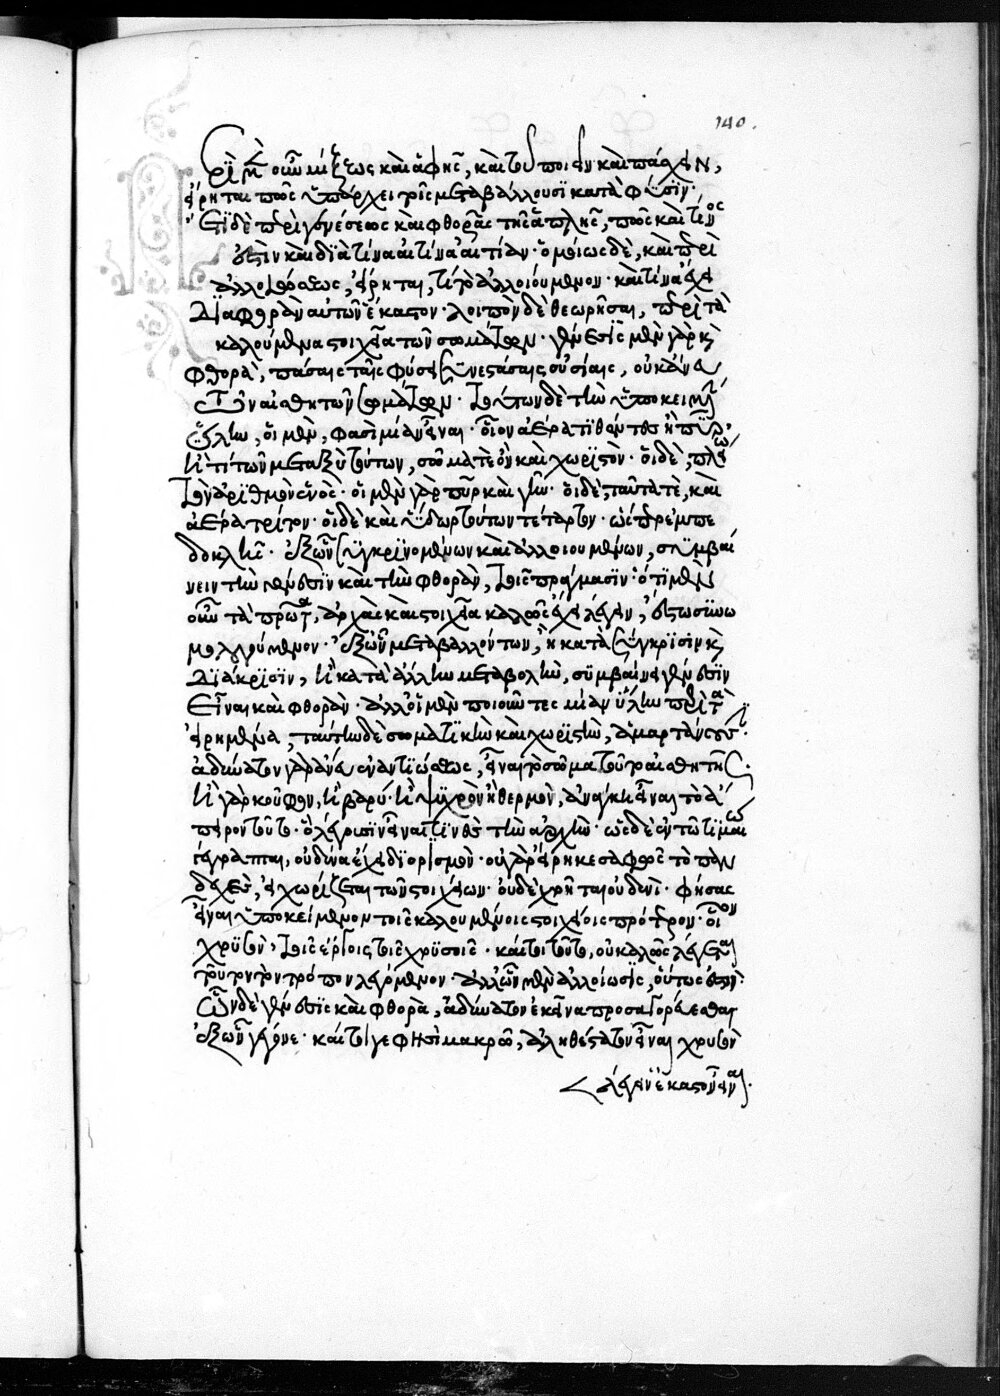 140.
ερὶ μὲν οὖν μίξεως καὶ ἁφῆς, καὶ τοῦ ποιεῖν καὶ πάσχειν,
εἴρηται πῶς ὑπάρχει τοῖς μεταβάλλουσι κατὰ φύσιν·
ἔτι δὲ περὶ γενέσεως καὶ φθορᾶς τῆς ἁπλῆς, πῶς καὶ τίνος
ἐστὶν καὶ διὰ τίνα αἰτίαν· ὁμοίως δὲ, καὶ περὶ
ἀλλοιώσεως, εἴρηται, τί τὸ ἀλλοιούμενον· καὶ τίνα ἔχει
διαφορὰν αὐτῶν ἕκαστον· λοιπὸν δὲ θεωρῆσαι, περὶ τὰ
καλούμενα στοιχεῖα τῶν σωμάτων· γένεσις μὲν γὰρ κὶ
φθορὰ, πάσαις ταῖς φύσει συνεστώσαις οὐσίαις, οὐκ ἄνευ
τῶν αἰσθητῶν σωμάτων· τούτων δὲ τὴν ὑποκειμένην
ὕλην, οἱ μὲν, φασὶ μίαν εἶναι· οἷον ἀέρα τιθέντες ἢ πῦρ·
ἤ τι τῶν μεταξὺ τούτων, σῶμά τε ὂν καὶ χωριστόν· οἱ δὲ, πλείω
τὸν ἀριθμὸν ἑνός· οἱ μὲν γὰρ πῦρ καὶ γῆν· οἱ δὲ, ταῦτά τε, καὶ
ἀέρα τρίτον· οἱ δὲ καὶ ὕδωρ τούτων τέταρτον· ὥσπερ ἐμπε
δοκλῆς· ἐξ ὧν συγκρινομένων καὶ ἀλλοιουμένων, συμβαί
νειν τὴν γένεσιν καὶ τὴν φθορὰν, τοῖς πράγμασιν· ὅτι μὲν
οὖν τὰ πρῶτα, ἀρχὰς καὶ στοιχεῖα καλῶς ἔχει λέγειν, ἔστω συνω
μολογούμενον· ἐξ ὧν μεταβαλλόντων, ἢ κατὰ σύγκρισιν κὶ
διάκρισιν, ἢ κατὰ ἄλλην μεταβολὴν, συμβαίνει γένεσιν
εἶναι καὶ φθοράν· ἀλλ' οἱ μὲν ποιοῦντες μίαν ὕλην περὶ τὰ
εἰρημένα, ταύτην δὲ σωματικὴν καὶ χωριστὴν, ἁμαρτάνουσιν·
ἀδύνατον γὰρ ἄνευ ἐναντιώσεως, εἶναι τὸ σῶμα τοῦτο αἰσθητῆς·
ἢ γὰρ κοῦφον, ἢ βαρύ· ἢ ψυχρὸν ἢ θερμὸν, ἀνάγκη εἶναι τὸ ἄ
πειρον τοῦτο· ὃ λέγουσιν εἶναί τινες τὴν ἀρχήν· ὡς δὲ ἐν τῶ τιμαίω
γέγραπται, οὐδένα ἔχει διορισμόν· οὐ γὰρ εἴρηκε σαφῶς τὸ παν
δεχὲς, εἰ χωρίζεται τῶν στοιχείων· οὐδὲ χρῆται οὐδενί· φήσας
εἶναι ὑποκείμενον τοῖς καλουμένοις στοιχείοις πρότερον· οἷον
χρυσὸν, τοῖς ἔργοις τοῖς χρυσοῖς· καίτοι τοῦτο, οὐ καλῶς λέγεται
τοῦτον τὸν τρόπον λεγόμενον· ἀλλ' ὧν μὲν ἀλλοίωσις, οὕτως ἐστίν·
ὧν δὲ γένεσις καὶ φθορὰ, ἀδύνατον ἐκεῖνα προσαγορεύεσθαι
ἐξ ὧν γέγονε· καίτοι γε φησὶ μακρῶ, ἀληθέστατον εἶναι χρυσὸν
λέγειν ἕκαστον εἶναι·